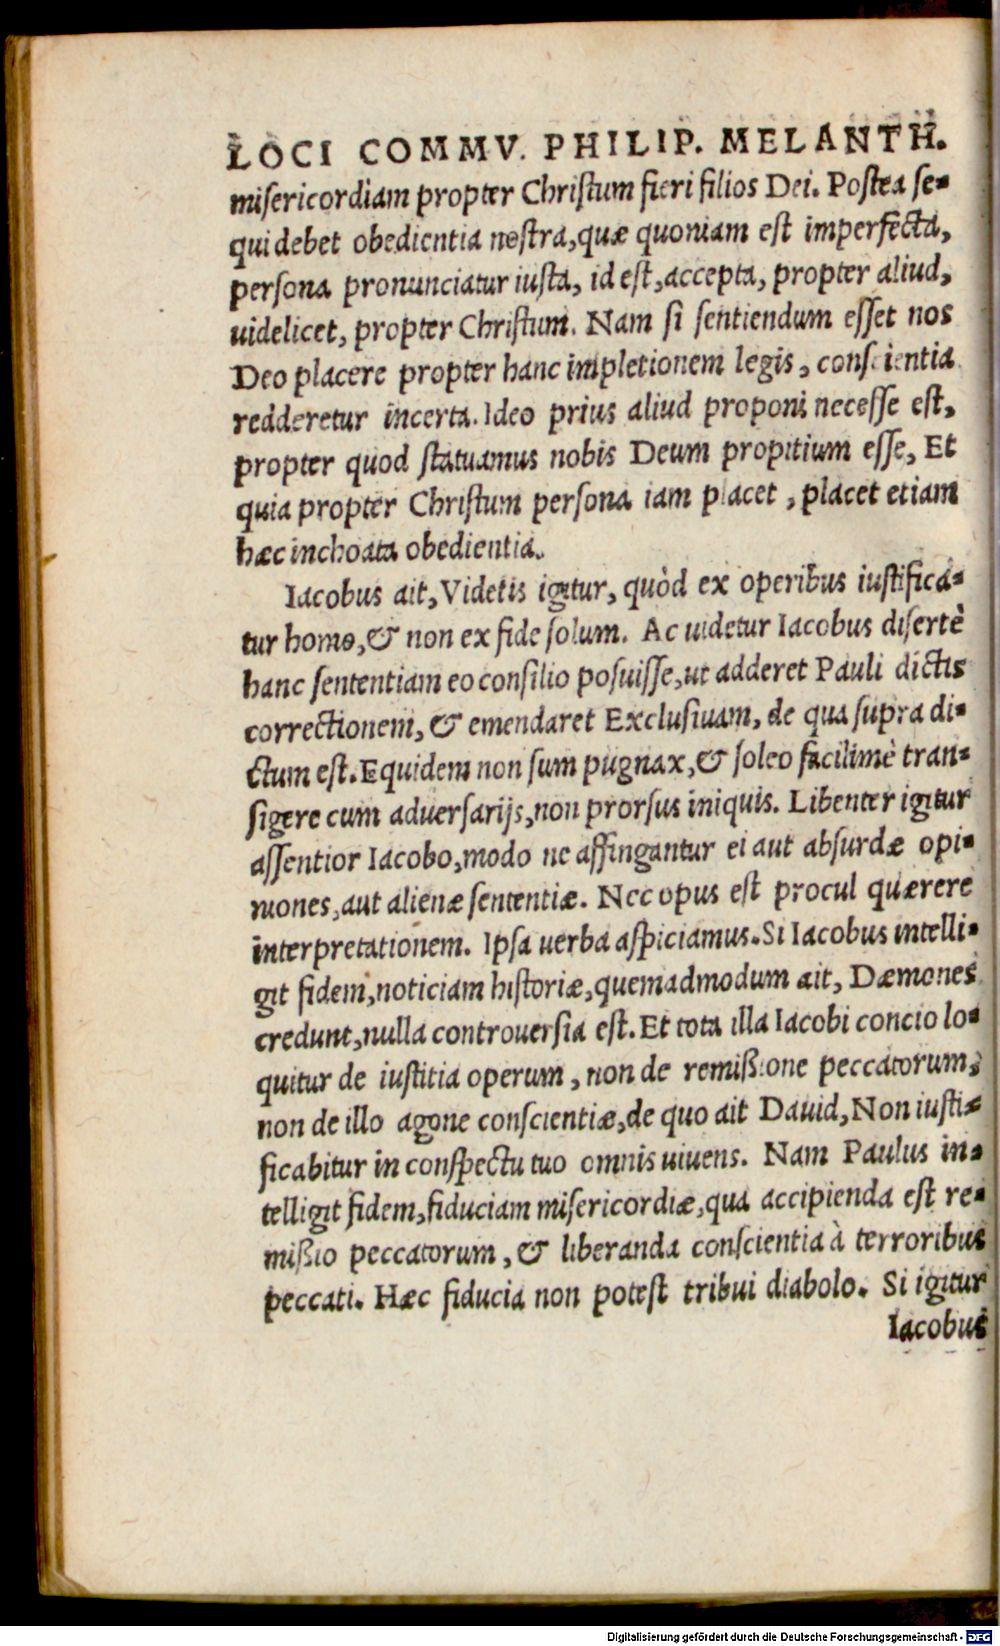 LOCI COMMV. PHILIP. MELANTH.
misericordiam propter Christum fieri filios Dei. Postea se-
qui debet obedientia nostra, quæ quoniam est imperfecta,
persona pronunciatur iusta, id est, accepta, propter aliud,
uidelicet, propter Christum. Nam si sentiendum esset nos
Deo placere propter hanc impletionem legis, conscientia
redderetur incerta. Ideo prius aliud proponi necesse est,
propter quod statuamus nobis Deum propitium esse, Et
quia propter Christum persona iam placet, placet etiam
hæc inchoata obedientia.
Iacobus ait, Videtis igitur, quòd ex operibus iustifica-
tur homo, & non ex fide solum. Ac uidetur Iacobus disertè
hanc sententiam eo consilio posuisse, ut adderet Pauli dictis
correctionem, & emendaret Exclusiuam, de qua supra di-
ctum est. Equidem non sum pugnax, & soleo facilimè tran-
sigere cum aduersarijs, non prorsus iniquis. Libenter igitur
assentior Iacobo, modo ne affingantur ei aut absurdæ opi-
niones, aut alienæ sententiæ. Nec opus est procul quærere
interpretationem. Ipsa uerba aspiciamus. Si Iacobus intelli-
git fidem, noticiam historiæ, quemadmodum ait, Dæmones
credunt, nulla controuersia est. Et tota illa Iacobi concio lo-
quitur de iustitia operum, non de remißione peccatorum,
non de illo agone conscientiæ, de quo ait Dauid, Non iusti-
ficabitur in conspectu tuo omnis uiuens. Nam Paulus in-
telligit fidem, fiduciam misericordiæ, qua accipienda est re-
mißio peccatorum, & liberanda conscientia à terroribus
peccati. Hæc fiducia non potest tribui diabolo. Si igitur
Iacobus
Digitalisierung gefördert durch die Deutsche Forschungsgemeinschaft - DFG